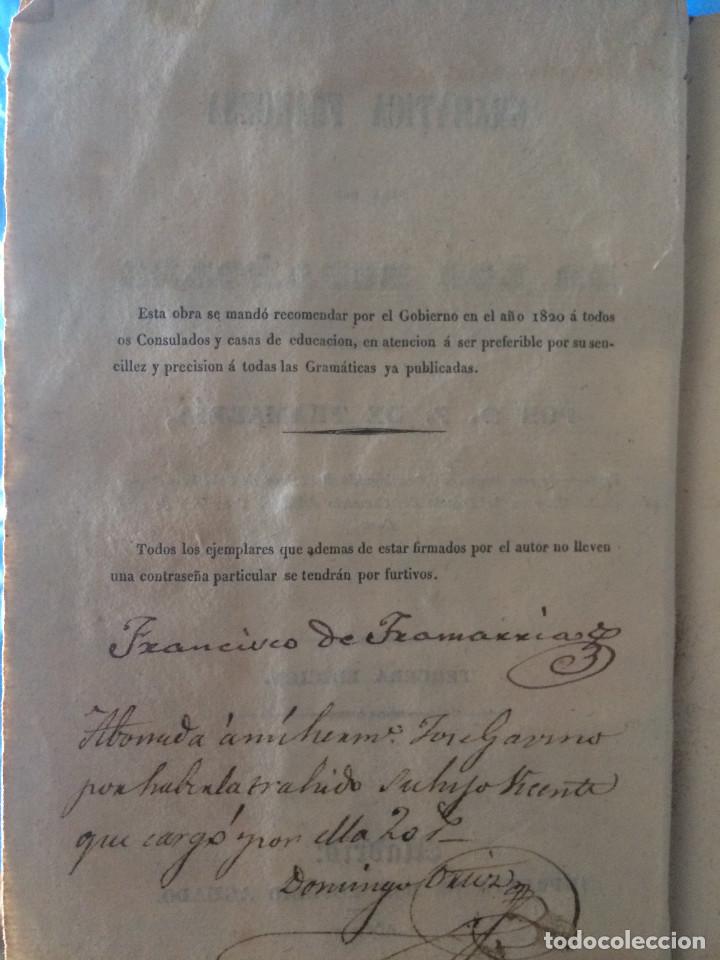 Esta obra se mandó recomendar por el Gobierno en el año 1820 á todos
os Consulados y casas de educacion, en atencion á ser preferible por su sen-
cillez y precision á todas las Gramáticas ya publicadas.
Todos los ejemplares que ademas de estar firmados por el autor no lleven
una contraseña particular se tendrán por furtivos.
Francisco de Tramarria
Abonada á mi herm.º Jose Gavino
por haberla trahido su hijo Vicente
que cargó por ella 20 r.
Domingo
GRAMÁTICA FRANCESA
POR D. F. DE TRAMARRÍA.
TERCERA EDICION.
MADRID.
AGUADO.
todocoleccion.net